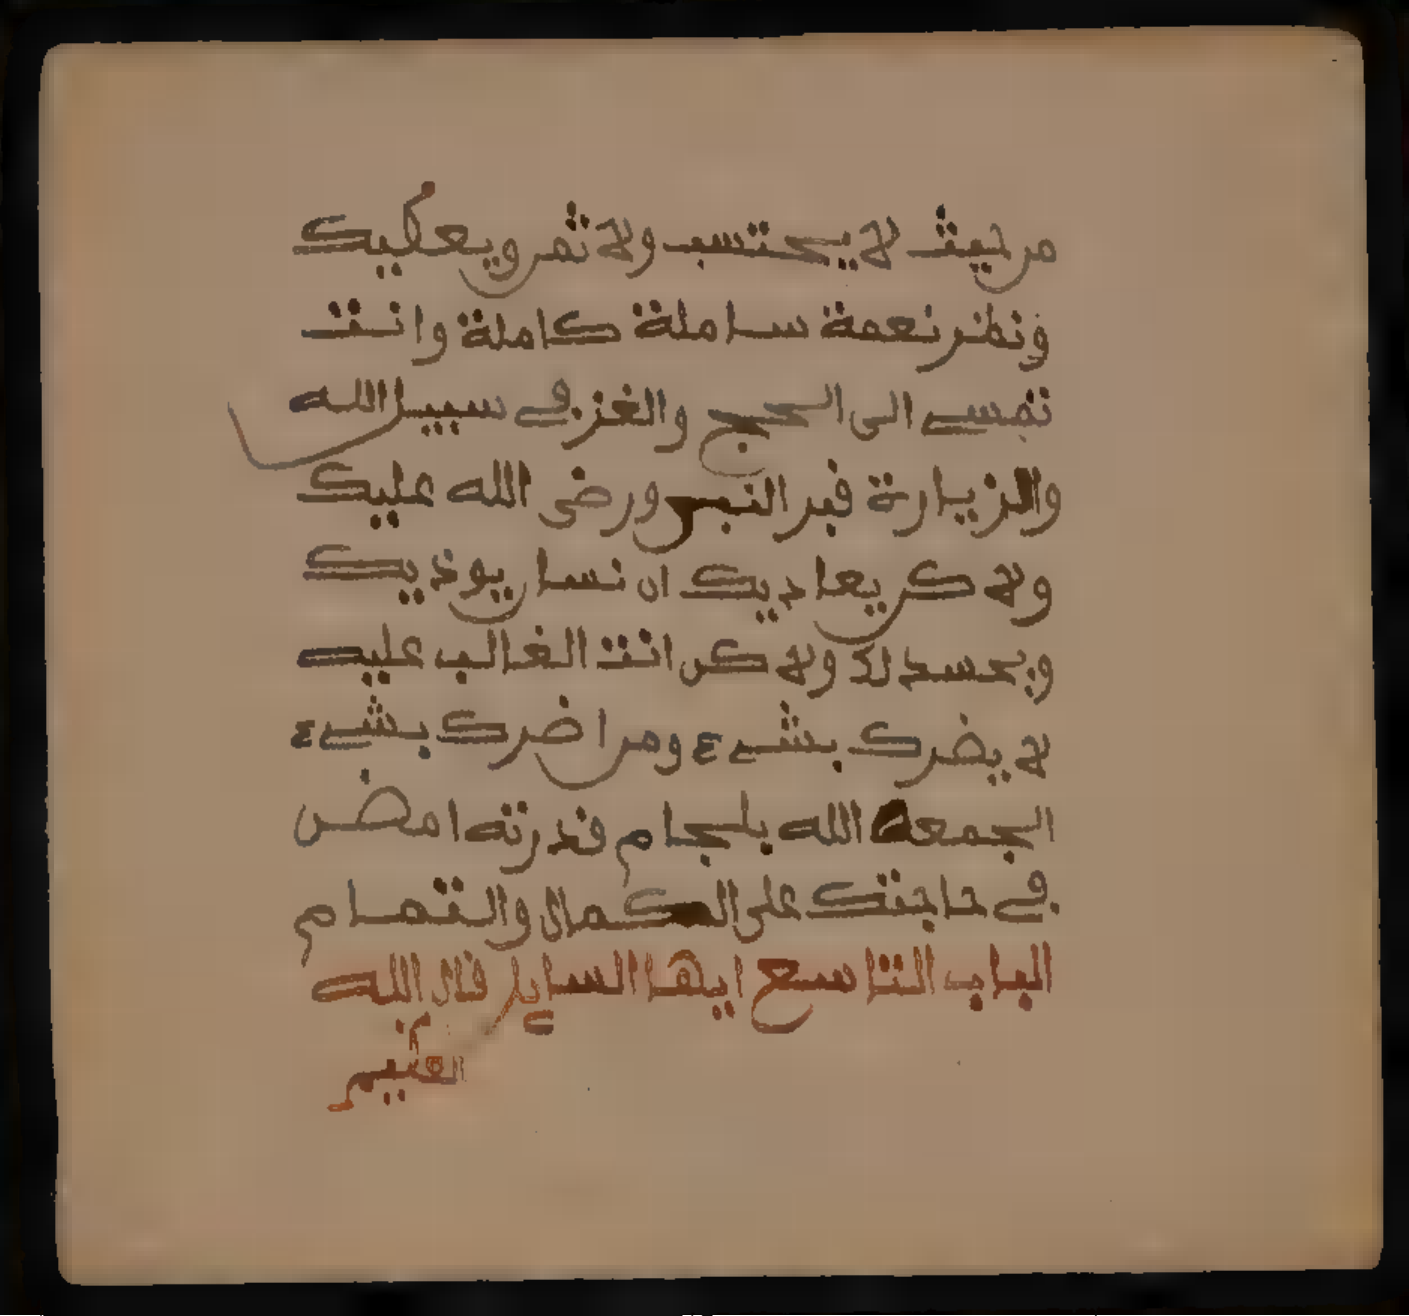 من حيث لا يحتسب ولا تمر ويعطيك
ونظر نعمة ساملة كاملة وانت
تمسي الى الحج والغز في سبيل الله
والزيارة قبر النبي ورضى الله عليك
ولا كن يعاديك ان نسا يوذيك
ويحسد لك ولا كن انت الغالب عليك
لا يضرك بشيء ومن اضرك بشيء
الجمعه الله بلجام قدرته امض
في حاجتك على الكمال والتمام
الباب التاسع ايها السايل قال الله
العظيم